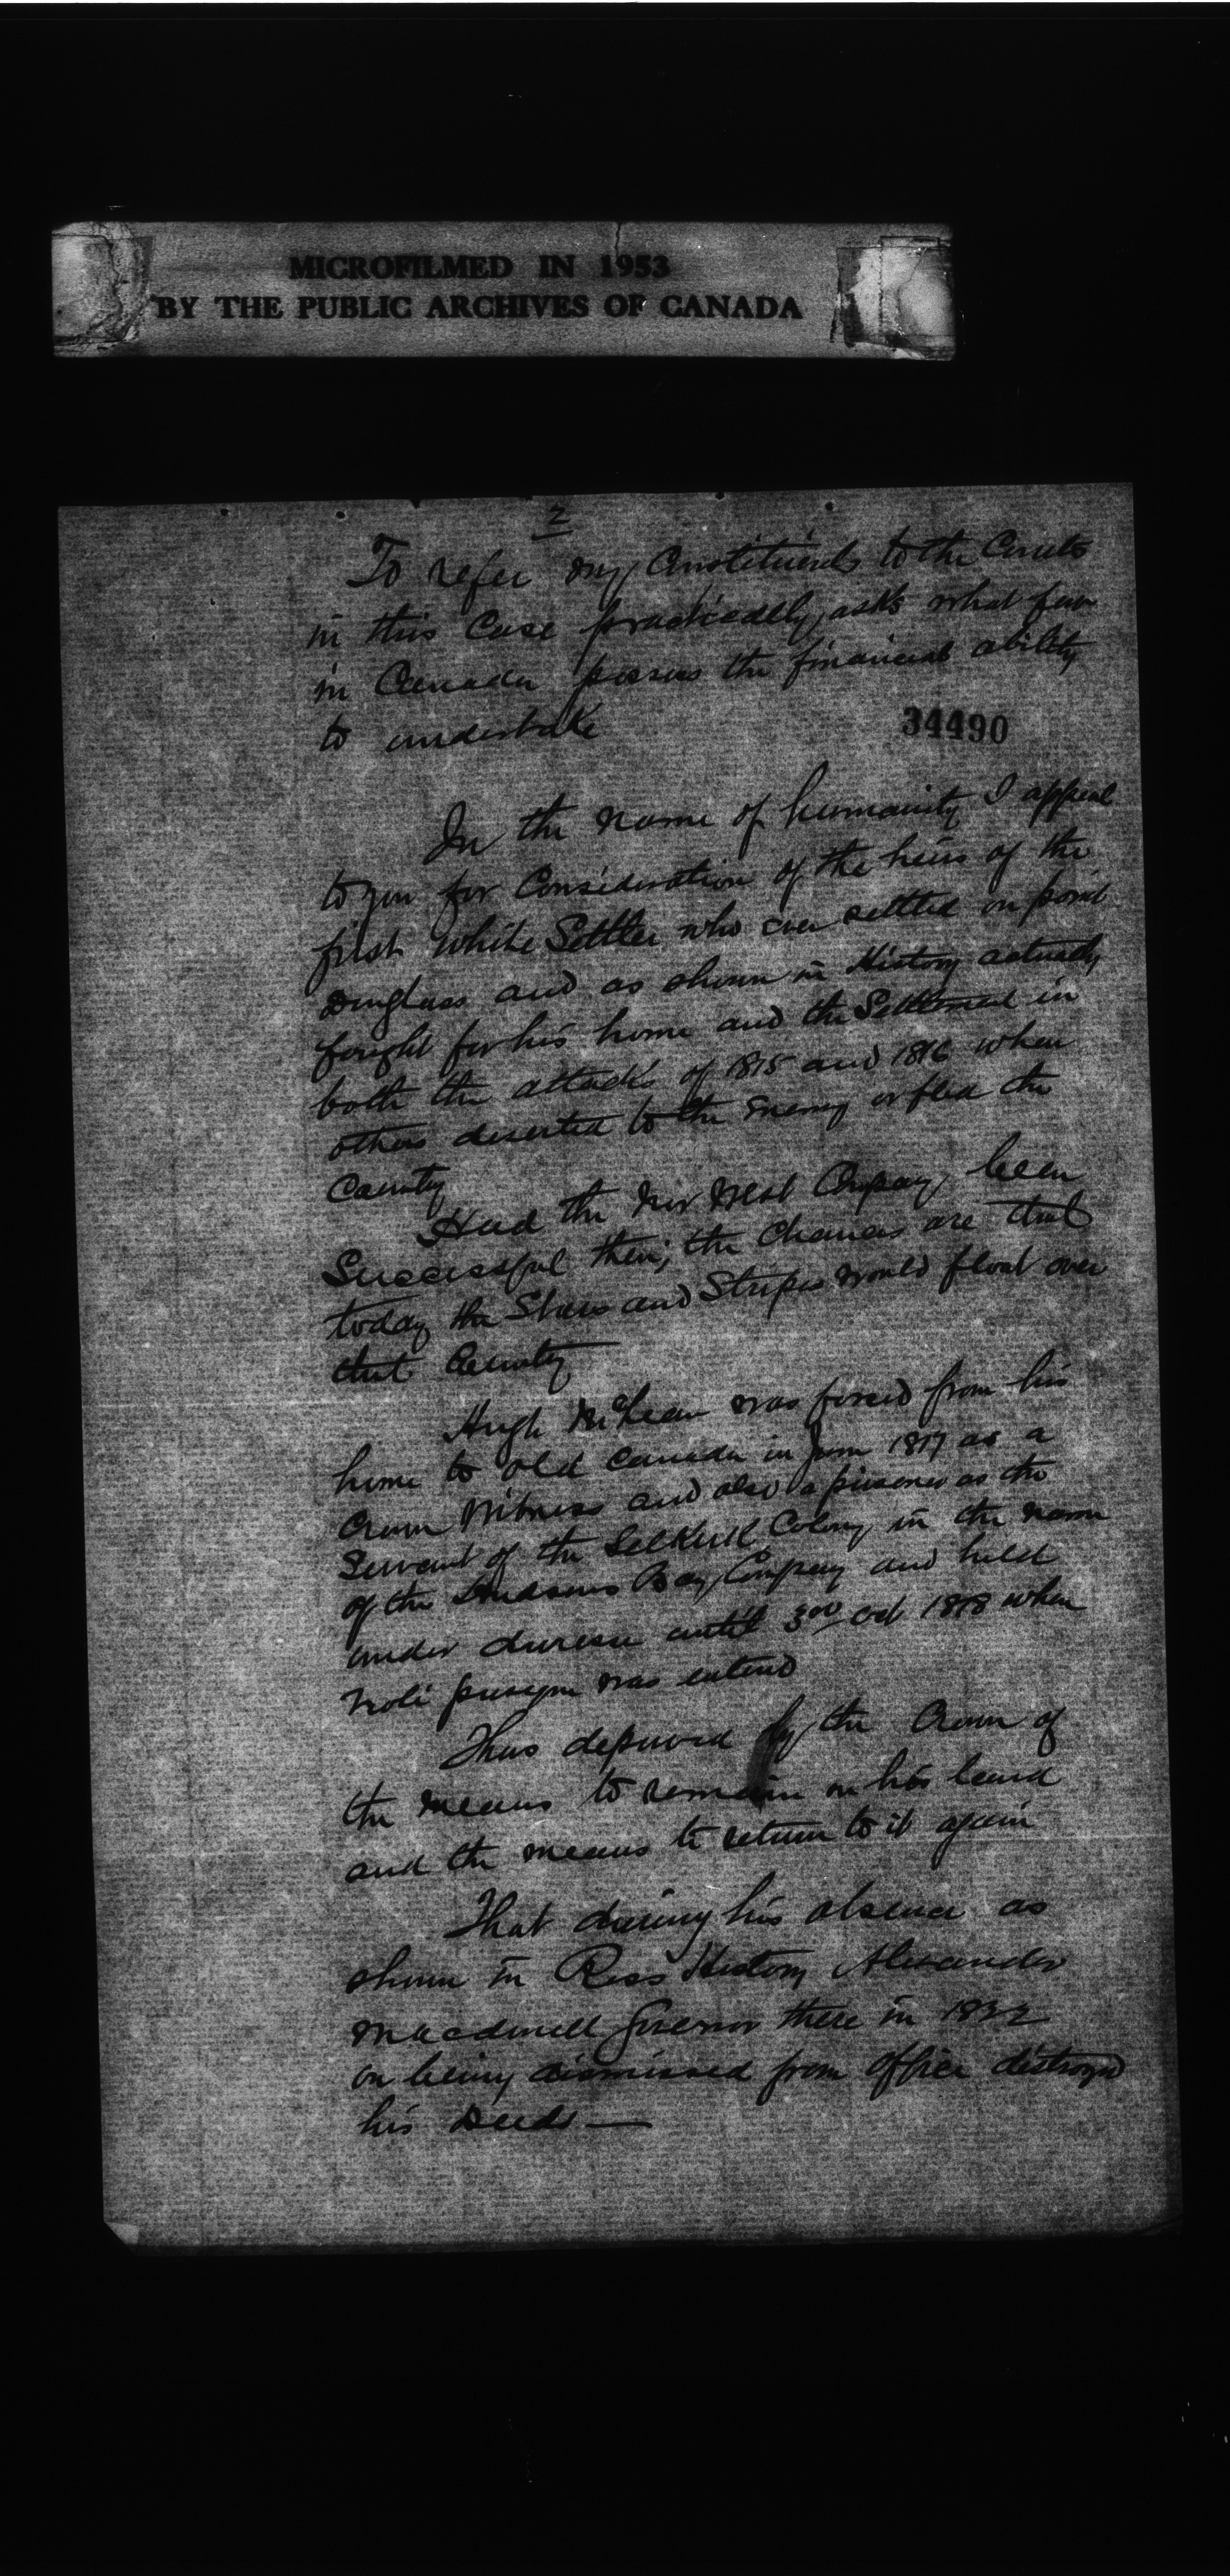 MICROFILMED IN 1953
BY THE PUBLIC ARCHIVES OF CANADA
2
To refer my Constituents to the Courts
in this Case practically asks what few
in Canada possess the financial ability
to undertake
34490
In the name of humanity I appeal
to you for Consideration of the heirs of the
first White Settler who ever settled on point
Douglass and as shown in History actually
fought for his home and the Settlement in
both the attacks of 1815 and 1816 when
others deserted to the Enemy or fled the
Country
Had the Nor West Company been
Successful then; the Chances are that
today the Stars and Stripes would float over
that Country
Hugh McLean was forced from his
home to old Canada in June 1817 as a
Crown Witness and also a prisoner as the
Servant of the Selkirk Colony in the name
of the Hudsons Bay Company and held
under duress until 3rd Oct 1818 when
Noli was entered
Thus deprived by the Crown of
the means to remain on his land
and the means to return to it again
That during his absence as
shown in Ross History Alexander
Macdonell Governor there in 1822
on being dismissed from office destroyed
his Deeds —